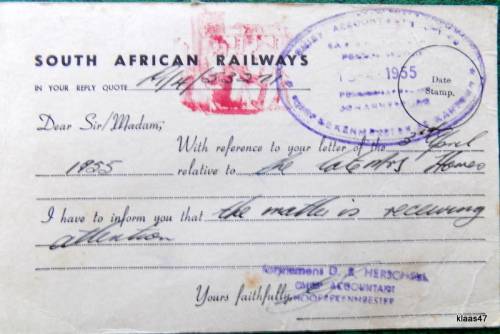 SOUTH AFRICAN RAILWAYS
IN YOUR REPLY QUOTE
1955
Date
Stamp.
Dear Sir/Madam;
With reference to your letter of the 5th April
1955 relative to the late Mrs
I have to inform you that the matter is receiving
attention
D. & HERSCHEL
CHIEF ACCOUNTANT
HOOFREKENMEESTER
Yours faithfully,
klaas47